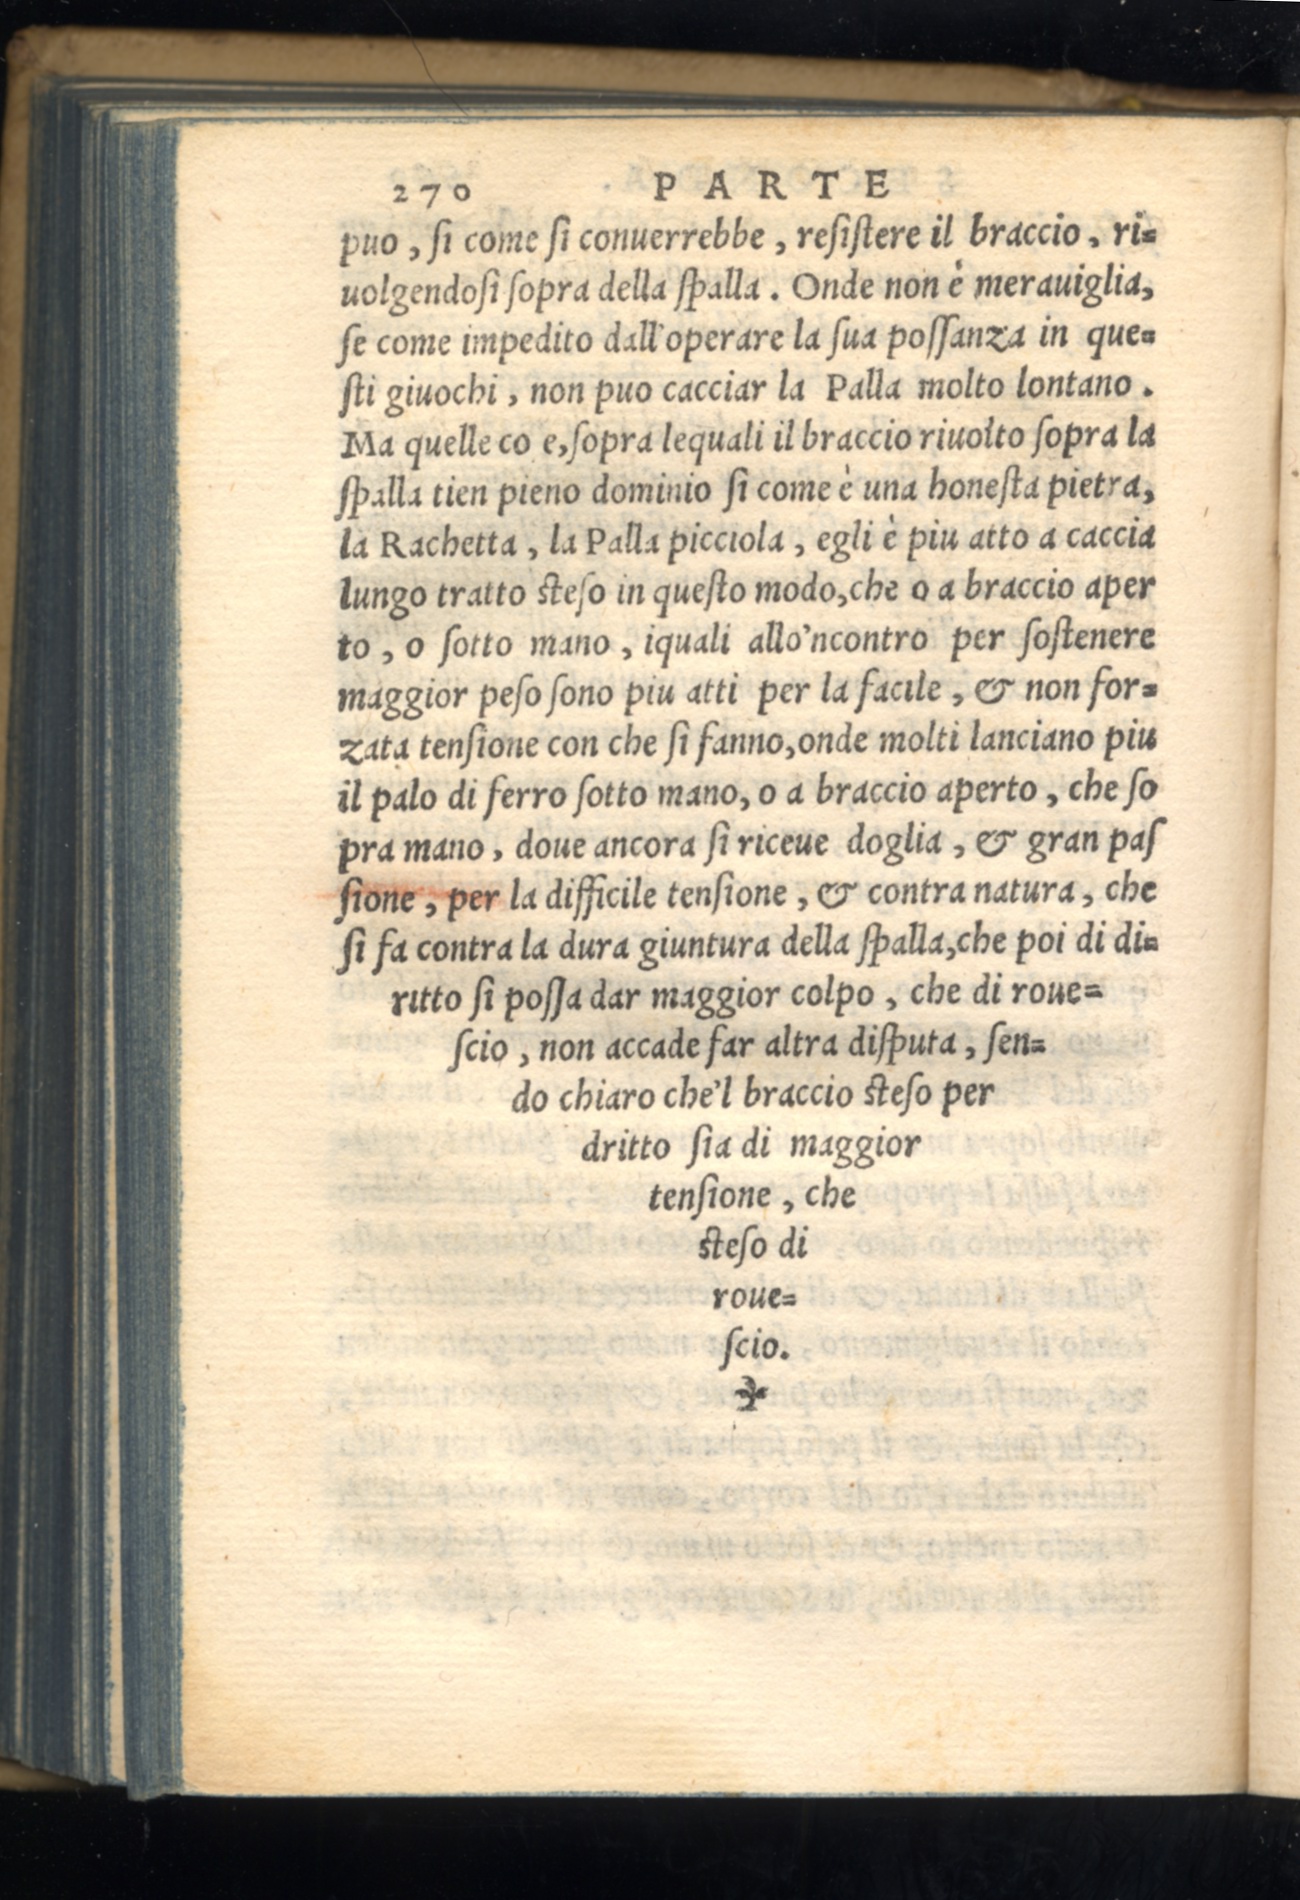 270 PARTE
puo, ſi come ſi conuerrebbe, reſiſtere il braccio, ri=
uolgendoſi ſopra della ſpalla. Onde non è merauiglia,
ſe come impedito dall'operare la ſua poſſanza in que=
ſti giuochi, non puo cacciar la Palla molto lontano.
Ma quelle co e, ſopra lequali il braccio riuolto ſopra la
ſpalla tien pieno dominio ſi come è una honeſta pietra,
la Rachetta, la Palla picciola, egli è piu atto a caccia
lungo tratto ſteſo in queſto modo, che o a braccio aper
to, o ſotto mano, iquali allo'ncontro per ſoſtenere
maggior peſo ſono piu atti per la facile, & non for=
zata tenſione con che ſi fanno, onde molti lanciano piu
il palo di ferro ſotto mano, o a braccio aperto, che ſo
pra mano, doue ancora ſi riceue doglia, & gran paſ
ſione, per la difficile tenſione, & contra natura, che
ſi fa contra la dura giuntura della ſpalla, che poi di di=
ritto ſi poſſa dar maggior colpo, che di roue=
ſcio, non accade far altra diſputa, ſen=
do chiaro che'l braccio ſteſo per
dritto ſia di maggior
tenſione, che
ſteſo di
roue=
ſcio.